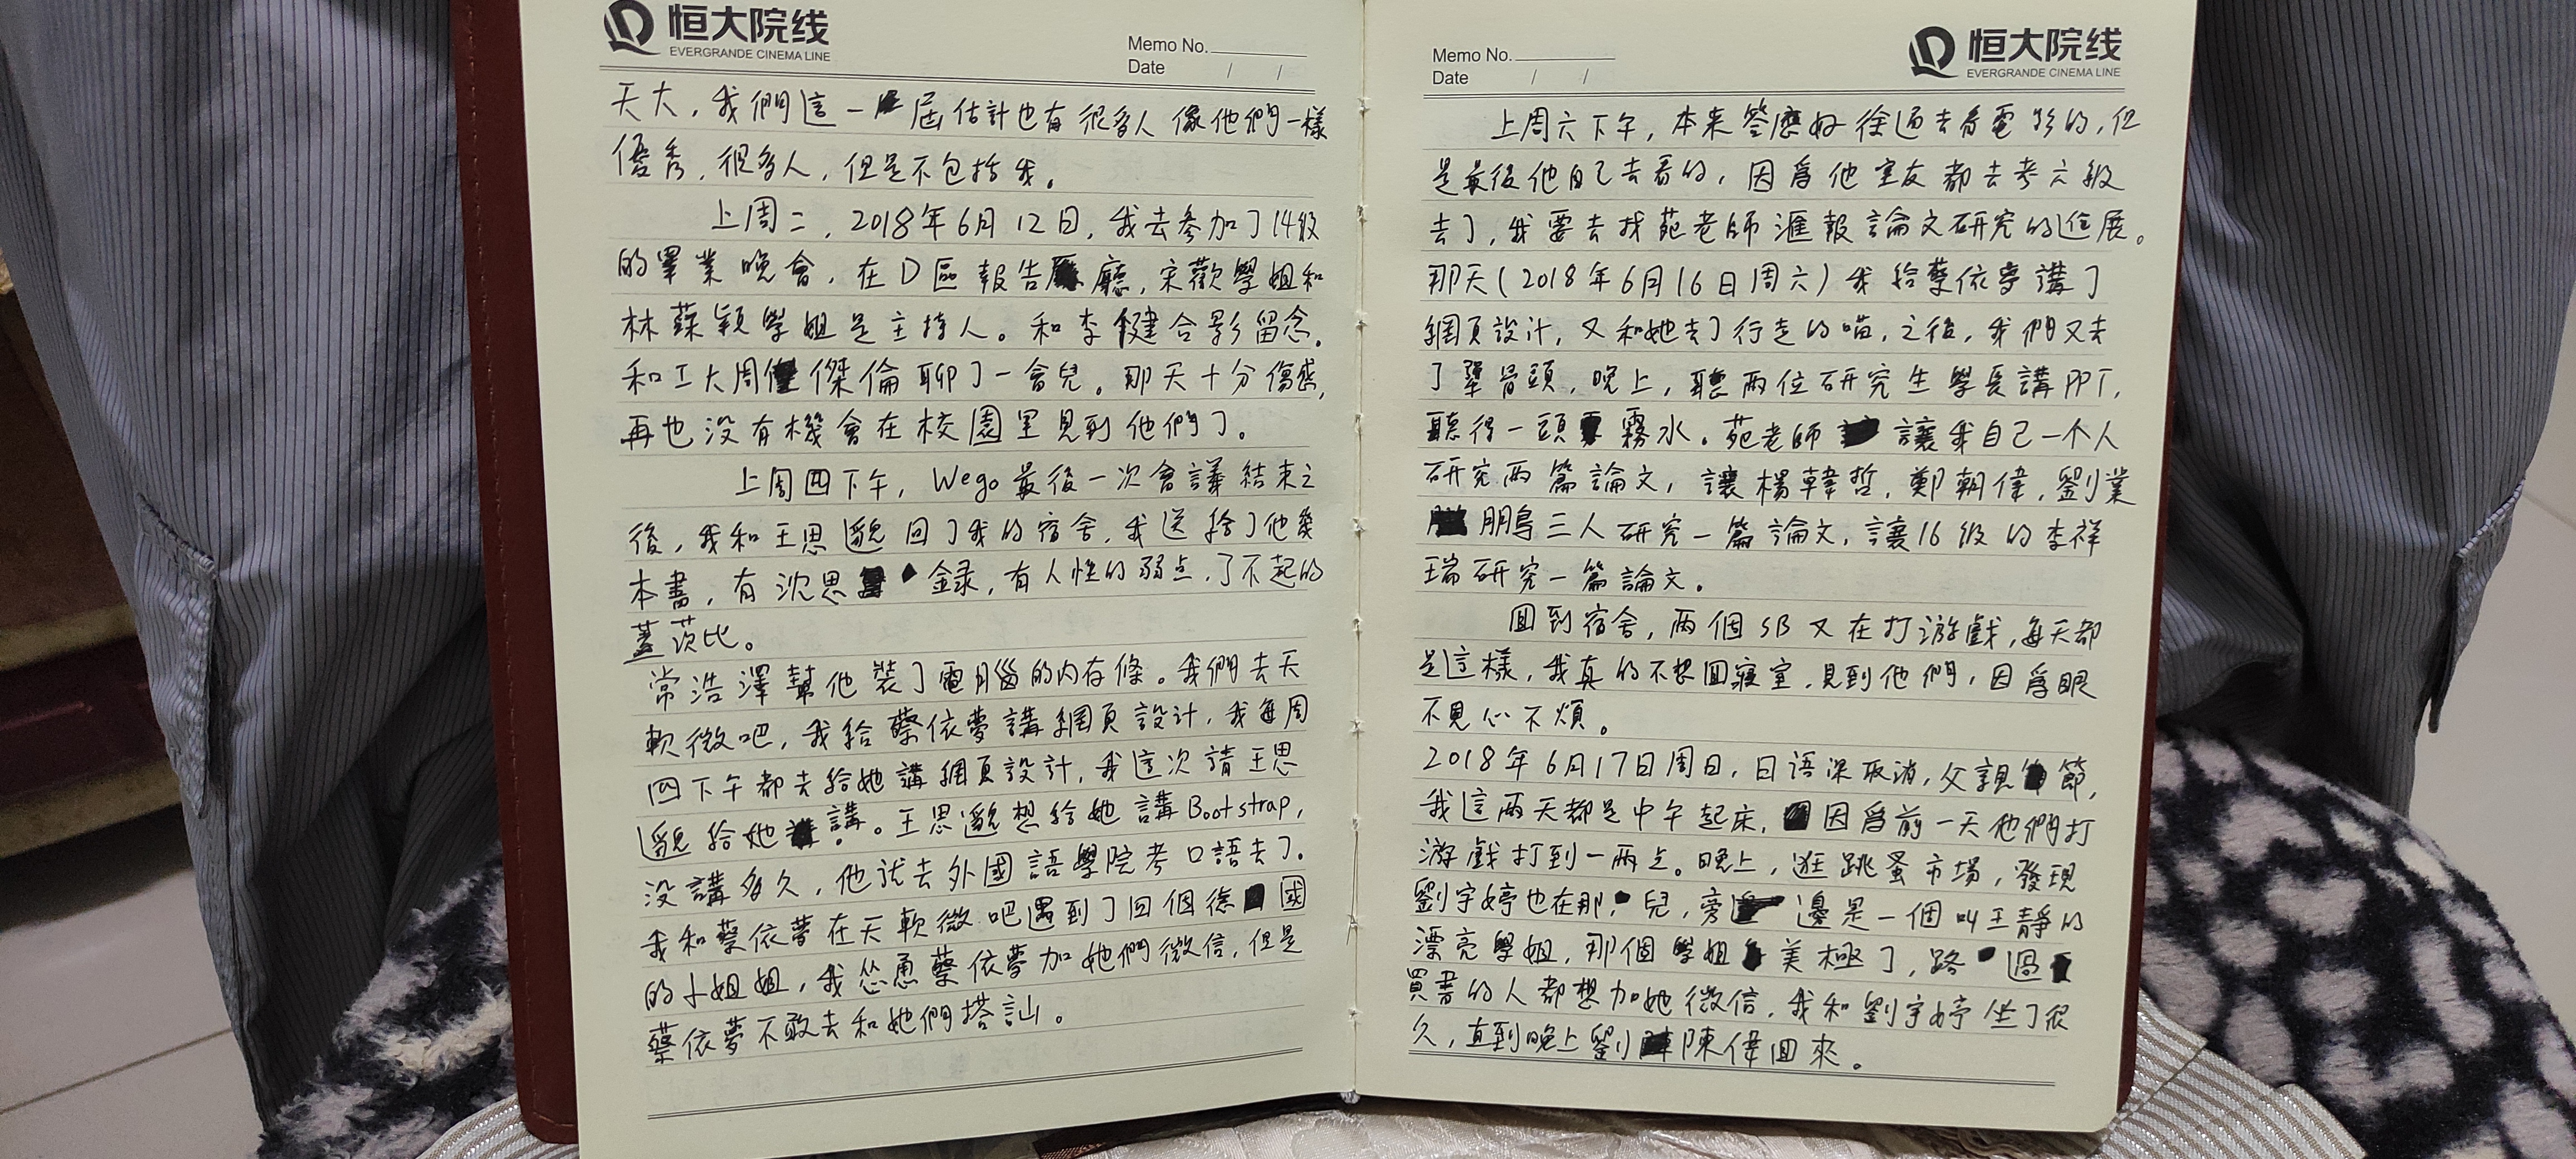 恒大院线
EVERGRANDE CINEMA LINE
Memo No.
Date / /
天大，我們這一届估計也有很多人像他們一樣
優秀，很多人，但是不包括我。
上周二，2018年6月12日，我去參加了14级
的畢業晚會，在D區報告廳，宋歡學姐和
林蘇穎學姐是主持人。和李健合影留念。
和工大周傑倫聊了一會兒。那天十分傷感，
再也没有機會在校園里見到他們了。
上周四下午，Wego最後一次會議結束之
後，我和王思邈回了我的宿舍，我送給了他幾
本書，有沈思録，有人性的弱点，了不起的
蓋茨比。
常浩澤幫他裝了電腦的内存條。我們去天
軟微吧，我給蔡依夢講網頁設計，我每周
四下午都去給她講網頁設計，我這次請王思
邈給她講。王思邈想給她講Bootstrap，
没講多久，他就去外國語學院考口語去了。
我和蔡依夢在天軟微吧遇到了四個德國
的小姐姐，我怂恿蔡依夢加她們微信，但是
蔡依夢不敢去和她們搭訕。
Memo No.
Date / /
恒大院线
EVERGRANDE CINEMA LINE
上周六下午，本来答應好徐通去看電影的，但
是最後他自己去看的，因爲他室友都去考六級
去了，我要去找苑老師滙報論文研究的進展。
那天(2018年6月16日周六)我给蔡依夢講了
網頁設計，又和她去了行走的喵，之後，我們又去
了犟骨頭，晚上，聽两位研究生學長講PPT，
聽得一頭霧水。苑老師讓我自己一个人
研究两篇論文，讓楊韓哲，鄭朝偉，劉業
鵬三人研究一篇論文，讓16级的李祥
瑞研究一篇論文。
回到宿舍，两個SB又在打游戲，每天都
是這樣，我真的不想回寢室，見到他們，因爲眼
不見心不煩。
2018年6月17日周日，日语课取消，父親節，
我這两天都是中午起床，因爲前一天他們打
游戲打到一两点。晚上，逛跳蚤市場，發現
劉宇婷也在那兒，旁邊是一個叫王靜的
漂亮學姐，那個學姐美極了，路過
買書的人都想加她微信，我和劉宇婷坐了很
久，直到晚上劉陳偉回來。